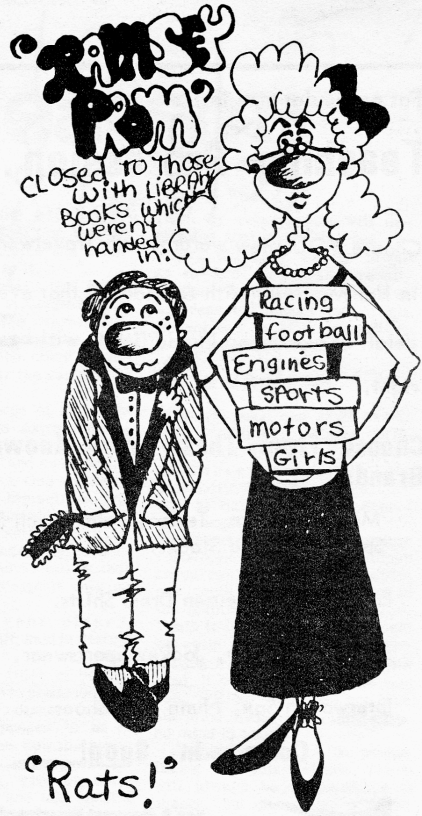 "RAMSEY
PROM"
CLOSED TO THOSE
WITH LIBRARY
BOOKS WHICH
weren't
handed
in:
Racing
football
Engines
SPORTS
motors
Girls
"Rats!"